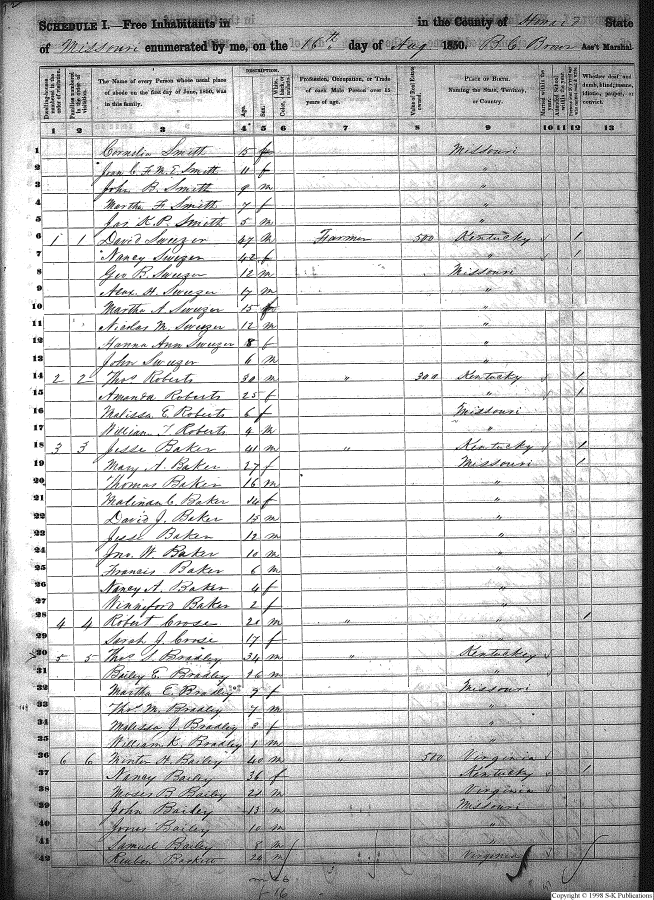 SCHEDULE I.—Free Inhabitants in in the County of State
of Missouri enumerated by me, on the 16th day of Aug 1850. Ass't Marshal.
DESCRIPTION.
Dwelling-houses numbered in the order of visitation.
Families numbered in the order of visitation.
The Name of every Person whose usual place of abode on the first day of June, 1850, was in this family.
Age.
Sex.
Color, White, black, or mulatto.
Profession, Occupation, or Trade of each Male Person over 15 years of age.
Value of Real Estate owned.
PLACE OF BIRTH. Naming the State, Territory, or Country.
Married within the year.
Attended School within the year.
Whether deaf and dumb, blind, insane, idiotic, pauper, or convict.
1 2 3 4 5 6 7 8 9 10 11 12 13
1 Cornelia Smith 15 f Missouri
2 Smith 11 f "
3 John B. Smith 9 m "
4 Martha F. Smith 7 f "
5 Jas K. P. Smith 5 m "
6 1 1 David Sweezer 47 M Farmer 500 Kentucky 1
7 Nancy Sweezer 42 f " 1
8 Geo B. Sweezer 12 m Missouri
9 Alex. H. Sweezer 17 m "
10 Martha A. Sweezer 15 f "
11 Nicolas M. Sweezer 12 m "
12 Hanna Ann Sweezer 8 f "
13 John Sweezer 6 m "
14 2 2 Thos Roberts 30 m " 300 Kentucky 1
15 Amanda Roberts 25 f " 1
16 Malissa E. Roberts 6 f Missouri
17 William T. Roberts 4 m "
18 3 3 Jesse Baker 41 m " Kentucky 1
19 Mary A. Baker 27 f Missouri 1
20 Thomas Baker 16 m "
21 Malinda C. Baker 14 f "
22 David J. Baker 13 m "
23 Jesse Baker 12 m "
24 Jno. W. Baker 10 m "
25 Francis Baker 6 m "
26 Nancy A. Baker 4 f "
27 Winneford Baker 2 f "
28 4 4 Robert Crose 20 m " " 1
29 Sarah J. Crose 17 f "
30 5 5 Thos S. Bradley 34 m " Kentucky
31 Bailey E. Bradley 26 m "
32 Martha E. Bradley 9 f Missouri
33 Thos M. Bradley 7 m "
34 Malissa J. Bradley 3 f "
35 William K. Bradley 1 m "
36 6 6 H. Bailey 40 m " 500 Virginia
37 Nancy Bailey 36 f Kentucky 1
38 Moses B. Bailey 21 m Virginia
39 John Bailey 13 m Missouri
40 Bailey 10 m "
41 Samuel Bailey 8 m "
42 Reuben 20 m Virginia
f 16
Copyright © 1998 S-K Publications